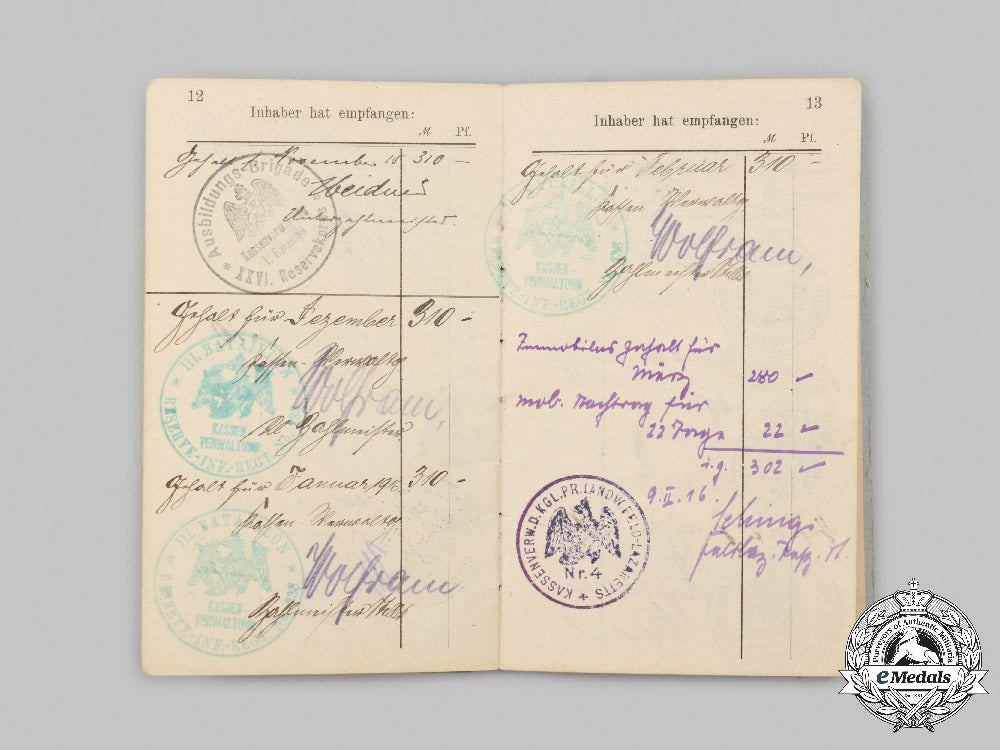 12
Inhaber hat empfangen:
M Pf.
Gehalt f. November 15 310 —
Weidner
Unterzahlmeister.
Ausbildungs-Brigade
Kassenverw.
XXVI. Reservekorps
Gehalt für Dezember 310 —
Kassen-Verwaltg
Wolfram,
Zahlmeister
III. BATAILLON
KASSEN-
VERWALTUNG
RESERVE-INF.-REGT. No. 238
Gehalt für Januar 310 —
Kassen Verwaltg
Wolfram
Zahlmeister Stellv
III. BATAILLON
KASSEN-
VERWALTUNG
RESERVE-INF.-REGT. No. 238
13
Inhaber hat empfangen:
M Pf.
Gehalt für Februar 310 —
Kassen Verwaltg
Wolfram,
Zahlmeister Stellv
III. BATAILLON
KASSEN-
VERWALTUNG
RESERVE-INF.-REGT. No. 238
Immobiles Gehalt für
März 280
mob. Nachtrag für
22 Tage 22
i.g. 302
9. II. 16.
KASSENVERW. D. KGL. PR. LANDW. FELD-LAZARETTS
Nr. 4
Purveyors of Authentic Militaria
eMedals